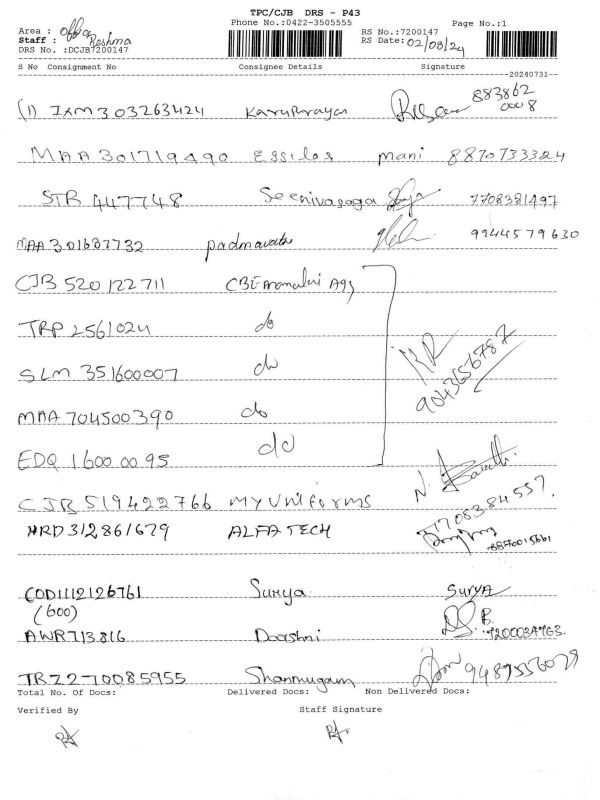 TPC/CJB DRS - P43
Phone No.:0422-3505555 Page No.:1
Area : office
Staff : Reshma
DRS No. :DCJB7200147
RS No.:7200147
RS Date: 02/08/24
S No Consignment No Consignee Details Signature
--20240731--
(1) IXM 303263424 Karuppaiya 883862
0008
MAA 301719490 Essilor mani 8870733324
STR 447748 Seenivasaga 7708381497
MAA 301637732 padmavathi 9944579630
CJB 520122711 CBE Aramalai Agy
TRP 2561024 do
SLM 351600007 do
MAA 704500390 do
EDQ 1600 00 95 do
KR
9043656787
CJB 519422766 MY UNIFORMS
HRD 312861679 ALFA TECH
COD1112126761 Surya SURYA
(600)
AWR713816 Darshni
TRZ 270085955 Shanmugam
Total No. Of Docs: Delivered Docs: Non Delivered Docs:
Verified By Staff Signature